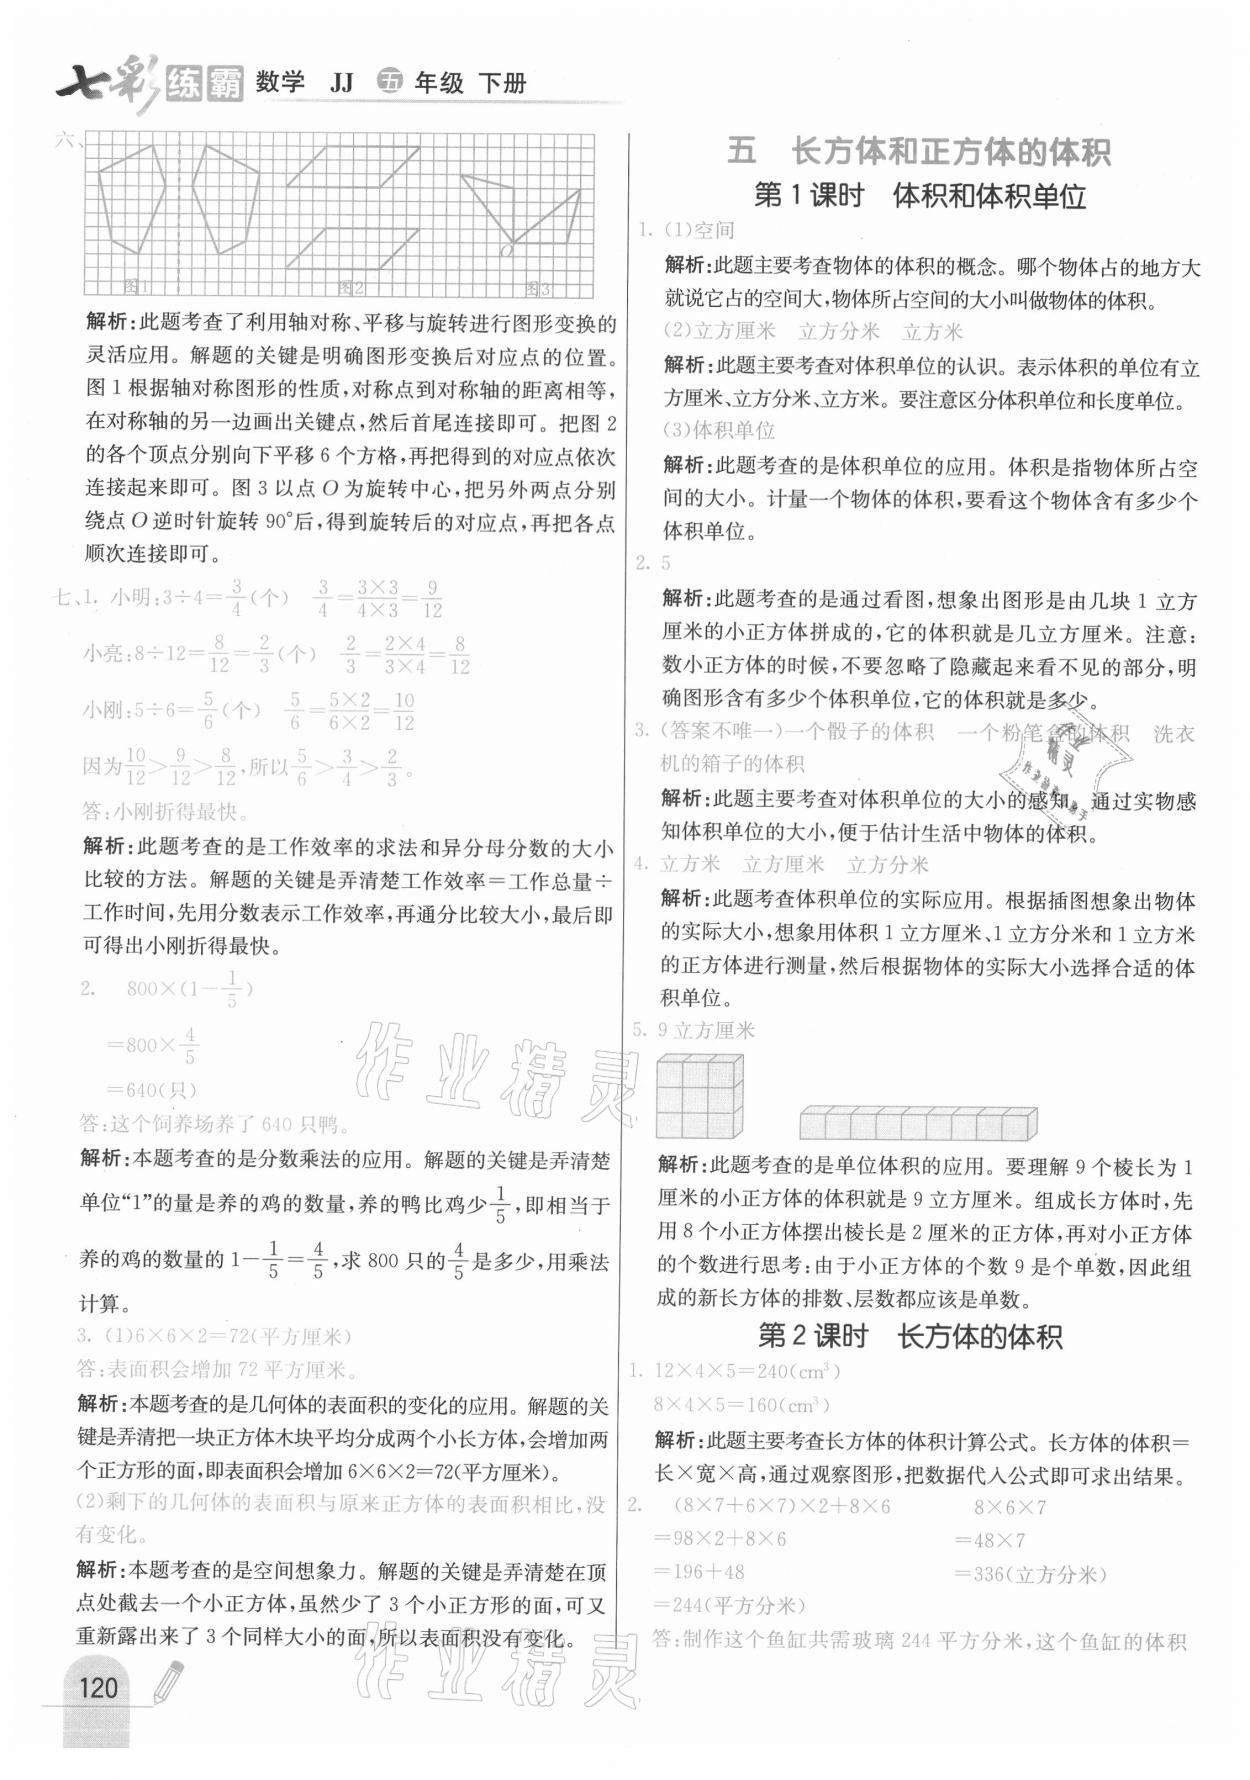 七彩练霸 数学 JJ 五年级 下册
六、
图1 图2 图3
O
解析:此题考查了利用轴对称、平移与旋转进行图形变换的
灵活应用。解题的关键是明确图形变换后对应点的位置。
图1根据轴对称图形的性质,对称点到对称轴的距离相等,
在对称轴的另一边画出关键点,然后首尾连接即可。把图2
的各个顶点分别向下平移6个方格,再把得到的对应点依次
连接起来即可。图3以点O为旋转中心,把另外两点分别
绕点O逆时针旋转90°后,得到旋转后的对应点,再把各点
顺次连接即可。
七、1. 小明:3÷4=3/4(个) 3/4=3×3/4×3=9/12
小亮:8÷12=8/12=2/3(个) 2/3=2×4/3×4=8/12
小刚:5÷6=5/6(个) 5/6=5×2/6×2=10/12
因为10/12>9/12>8/12,所以5/6>3/4>2/3。
答:小刚折得最快。
解析:此题考查的是工作效率的求法和异分母分数的大小
比较的方法。解题的关键是弄清楚工作效率=工作总量÷
工作时间,先用分数表示工作效率,再通分比较大小,最后即
可得出小刚折得最快。
2. 800×(1-1/5)
=800×4/5
=640(只)
答:这个饲养场养了640只鸭。
解析:本题考查的是分数乘法的应用。解题的关键是弄清楚
单位“1”的量是养的鸡的数量,养的鸭比鸡少1/5,即相当于
养的鸡的数量的1-1/5=4/5,求800只的4/5是多少,用乘法
计算。
3. (1)6×6×2=72(平方厘米)
答:表面积会增加72平方厘米。
解析:本题考查的是几何体的表面积的变化的应用。解题的关
键是弄清把一块正方体木块平均分成两个小长方体,会增加两
个正方形的面,即表面积会增加6×6×2=72(平方厘米)。
(2)剩下的几何体的表面积与原来正方体的表面积相比,没
有变化。
解析:本题考查的是空间想象力。解题的关键是弄清楚在顶
点处截去一个小正方体,虽然少了3个小正方形的面,可又
重新露出来了3个同样大小的面,所以表面积没有变化。
120
五 长方体和正方体的体积
第1课时 体积和体积单位
1. (1)空间
解析:此题主要考查物体的体积的概念。哪个物体占的地方大
就说它占的空间大,物体所占空间的大小叫做物体的体积。
(2)立方厘米 立方分米 立方米
解析:此题主要考查对体积单位的认识。表示体积的单位有立
方厘米、立方分米、立方米。要注意区分体积单位和长度单位。
(3)体积单位
解析:此题考查的是体积单位的应用。体积是指物体所占空
间的大小。计量一个物体的体积,要看这个物体含有多少个
体积单位。
2. 5
解析:此题考查的是通过看图,想象出图形是由几块1立方
厘米的小正方体拼成的,它的体积就是几立方厘米。注意:
数小正方体的时候,不要忽略了隐藏起来看不见的部分,明
确图形含有多少个体积单位,它的体积就是多少。
3. (答案不唯一)一个骰子的体积 一个粉笔盒的体积 洗衣
机的箱子的体积
解析:此题主要考查对体积单位的大小的感知。通过实物感
知体积单位的大小,便于估计生活中物体的体积。
4. 立方米 立方厘米 立方分米
解析:此题考查体积单位的实际应用。根据插图想象出物体
的实际大小,想象用体积1立方厘米、1立方分米和1立方米
的正方体进行测量,然后根据物体的实际大小选择合适的体
积单位。
5. 9立方厘米
解析:此题考查的是单位体积的应用。要理解9个棱长为1
厘米的小正方体的体积就是9立方厘米。组成长方体时,先
用8个小正方体摆出棱长是2厘米的正方体,再对小正方体
的个数进行思考:由于小正方体的个数9是个单数,因此组
成的新长方体的排数、层数都应该是单数。
第2课时 长方体的体积
1. 12×4×5=240(cm³)
8×4×5=160(cm³)
解析:此题主要考查长方体的体积计算公式。长方体的体积=
长×宽×高,通过观察图形,把数据代入公式即可求出结果。
2. (8×7+6×7)×2+8×6 8×6×7
=98×2+8×6 =48×7
=196+48 =336(立方分米)
=244(平方分米)
答:制作这个鱼缸共需玻璃244平方分米,这个鱼缸的体积
作业精灵
作业精灵
作业精灵